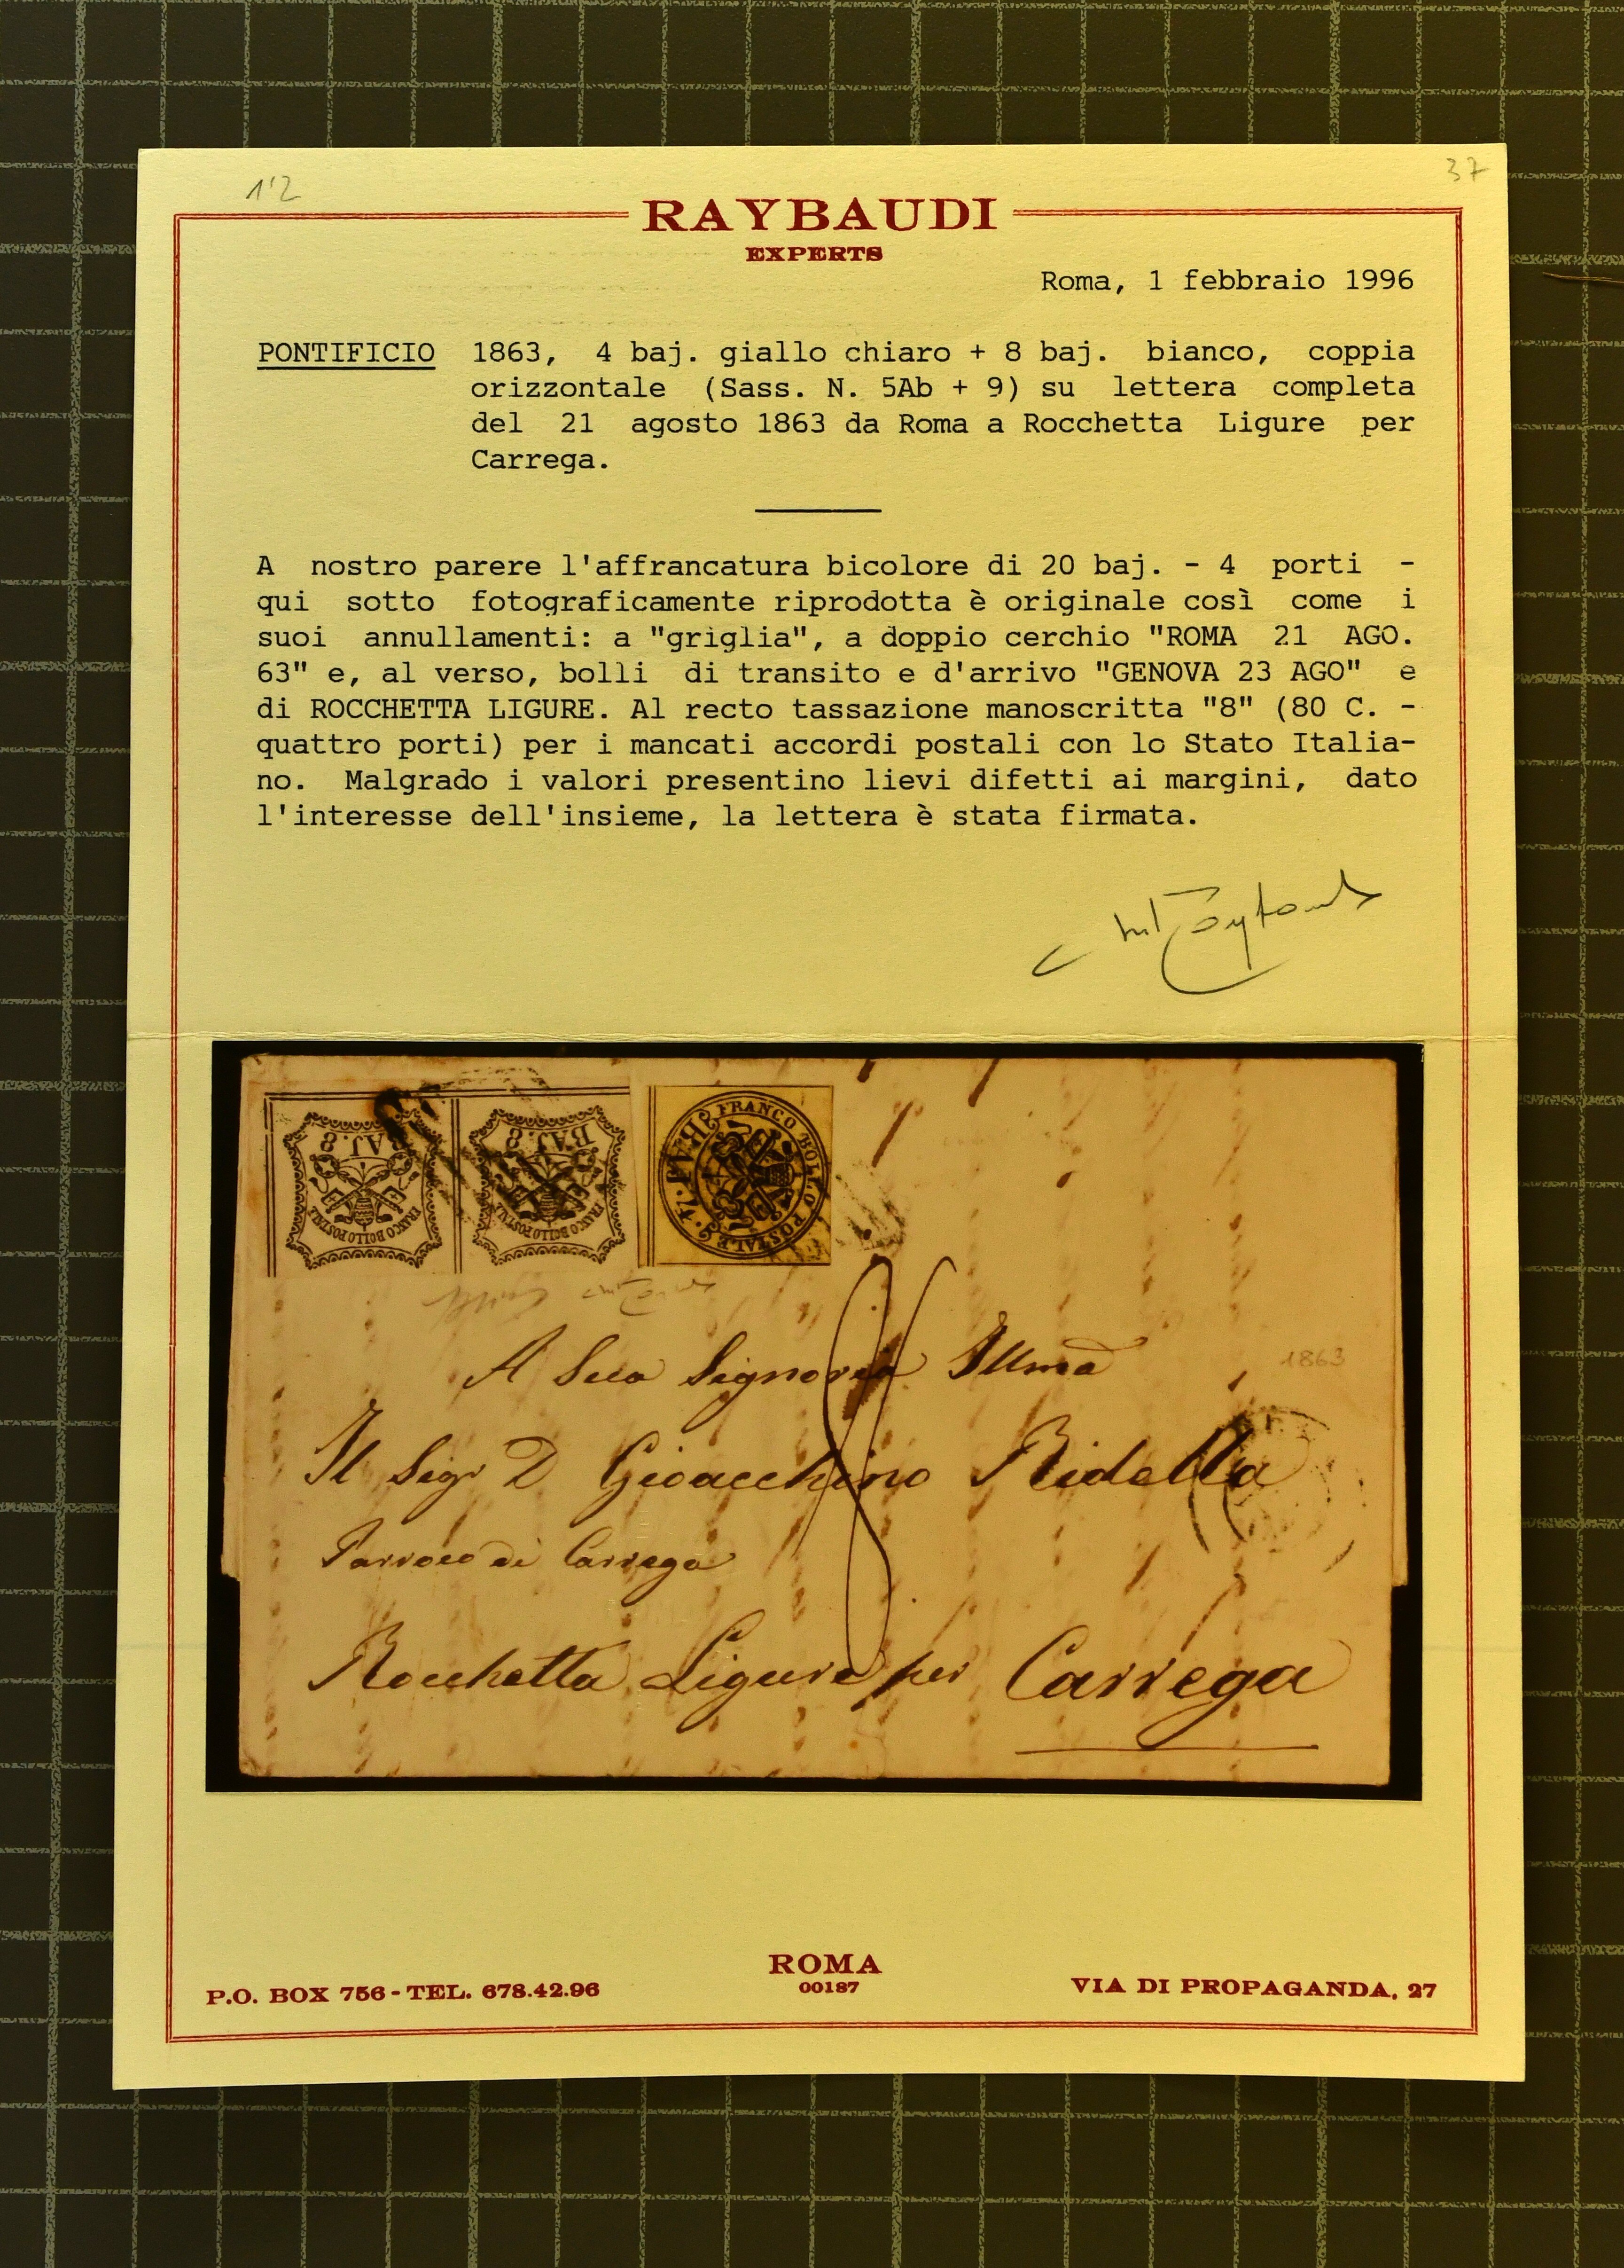 1'2
37
RAYBAUDI
EXPERTS
Roma, 1 febbraio 1996
PONTIFICIO 1863, 4 baj. giallo chiaro + 8 baj. bianco, coppia
orizzontale (Sass. N. 5Ab + 9) su lettera completa
del 21 agosto 1863 da Roma a Rocchetta Ligure per
Carrega.
A nostro parere l'affrancatura bicolore di 20 baj. - 4 porti -
qui sotto fotograficamente riprodotta è originale così come i
suoi annullamenti: a "griglia", a doppio cerchio "ROMA 21 AGO.
63" e, al verso, bolli di transito e d'arrivo "GENOVA 23 AGO" e
di ROCCHETTA LIGURE. Al recto tassazione manoscritta "8" (80 C. -
quattro porti) per i mancati accordi postali con lo Stato Italia-
no. Malgrado i valori presentino lievi difetti ai margini, dato
l'interesse dell'insieme, la lettera è stata firmata.
BAJ. 8
FRANCO BOLLO POSTALE
BAJ. 8
FRANCO BOLLO POSTALE
FRANCO BOLLO POSTALE
4. BAJ
8
A Sua Signoria Illma
1863
Il Sigr D Gioacchino Ridella
Parroco di Carrega
Rocchetta Ligure per Carrega
ROMA
00187
P.O. BOX 756 - TEL. 678.42.96
VIA DI PROPAGANDA, 27